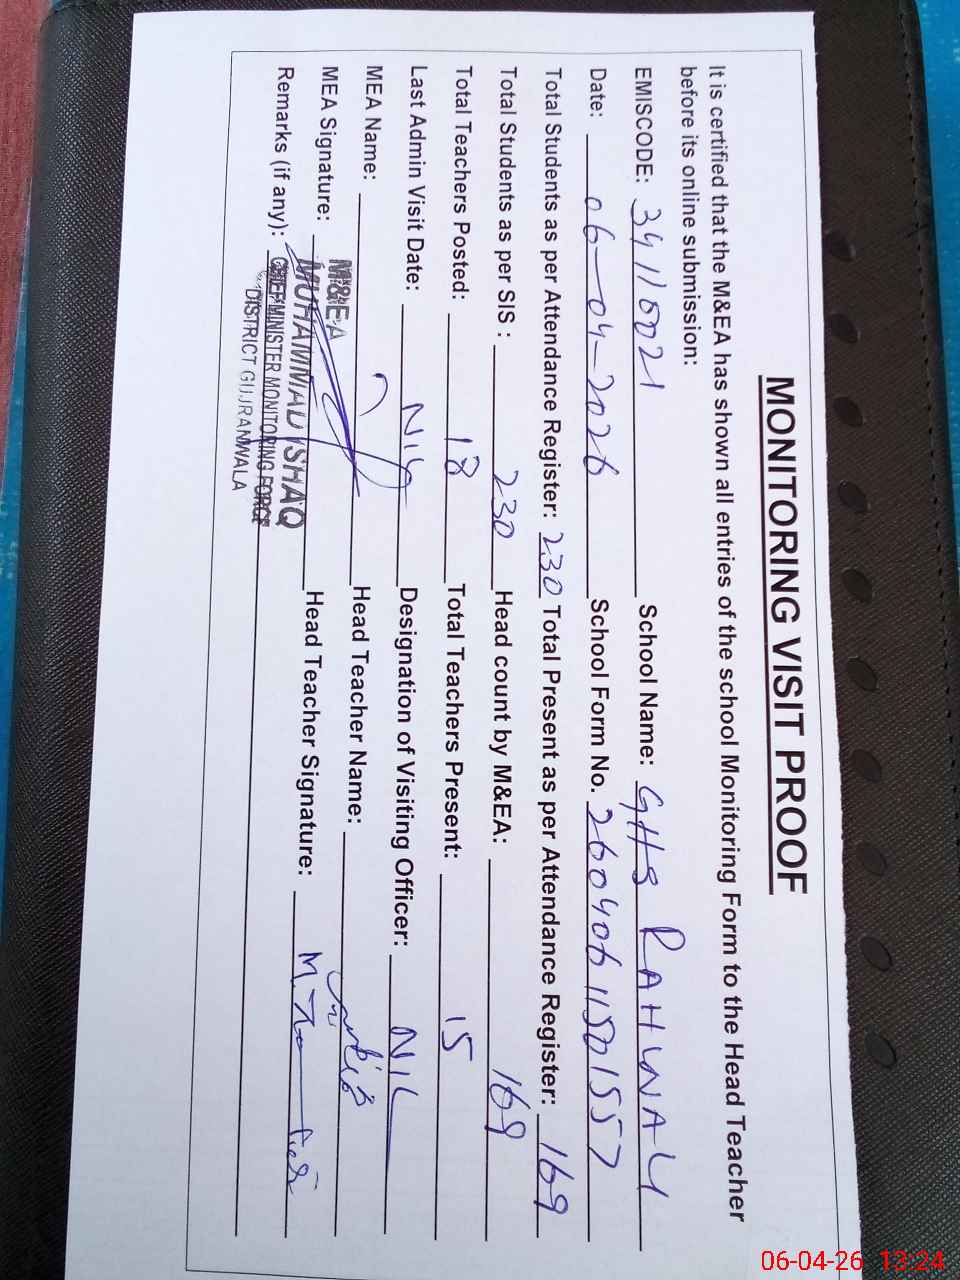 MONITORING VISIT PROOF
It is certified that the M&EA has shown all entries of the school Monitoring Form to the Head Teacher
before its online submission:
EMISCODE: 34110021 School Name: GHS RAHWALI
Date: 06-04-2026 School Form No. 26040611501557
Total Students as per Attendance Register: 230 Total Present as per Attendance Register: 169
Total Students as per SIS : 230 Head count by M&EA: 169
Total Teachers Posted: 18 Total Teachers Present: 15
Last Admin Visit Date: NIL Designation of Visiting Officer: NIL
MEA Name: Head Teacher Name:
MEA Signature: Head Teacher Signature:
Remarks (if any):
M&EA
MUHAMMAD ISHAQ
CHIEF MINISTER MONITORING FORCE
DISTRICT GUJRANWALA
06-04-26 13:24